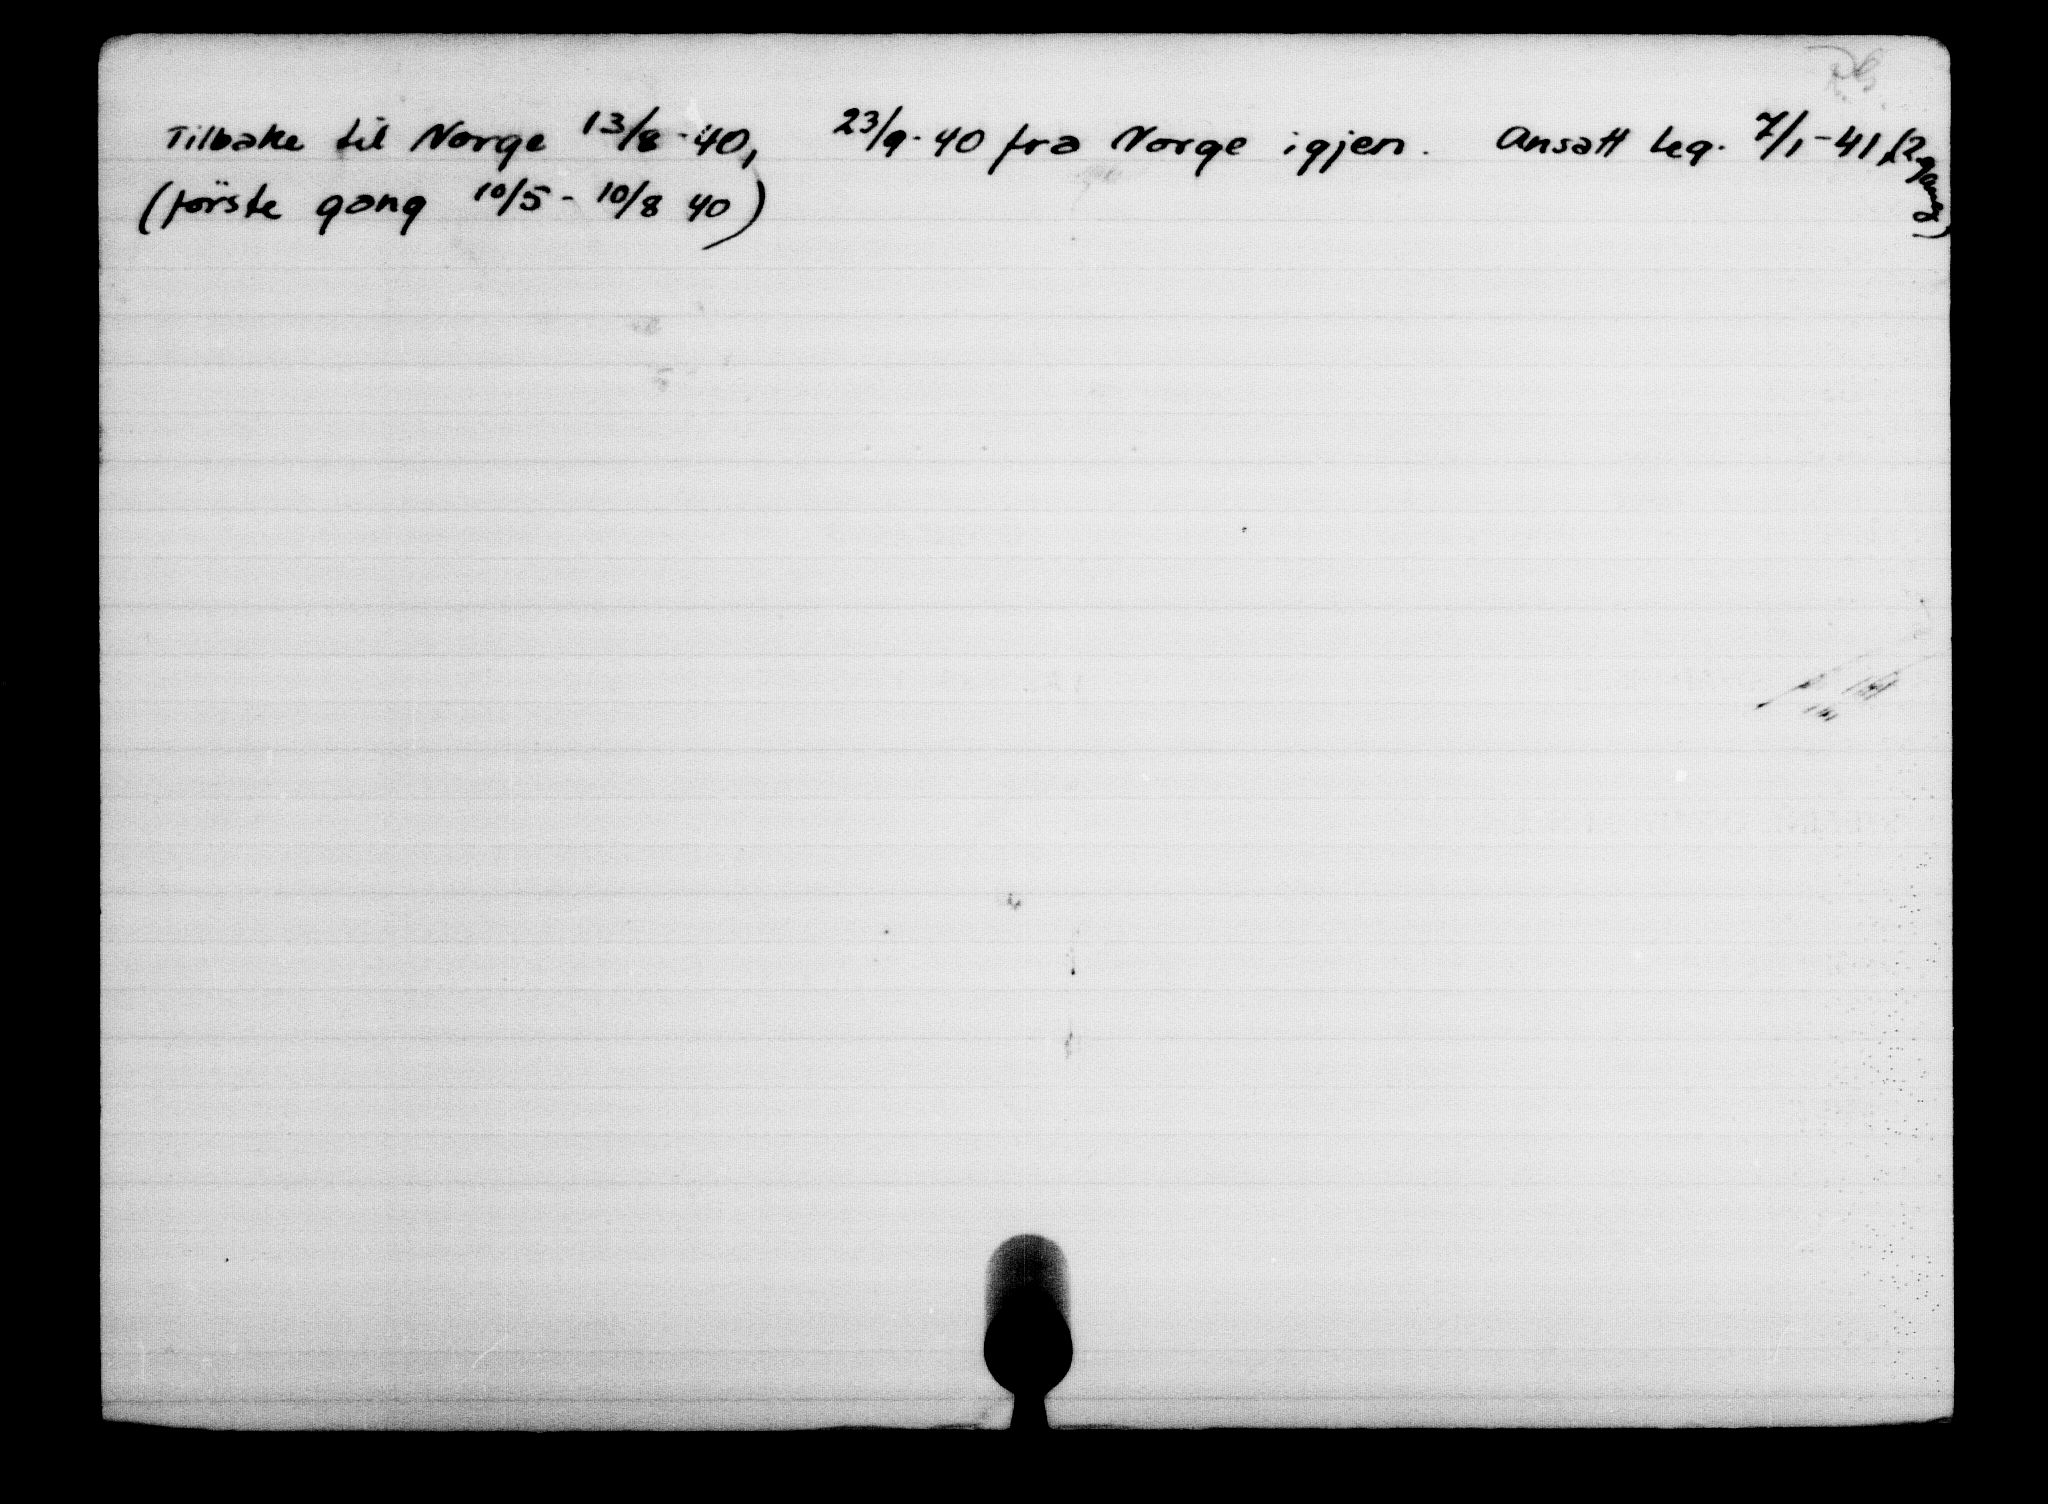 Tilbake til Norge 13/8-40, 23/9-40 fra Norge igjen. Ansatt leg. 7/1-41 (2 gang)
(første gang 10/5 - 10/8 40)